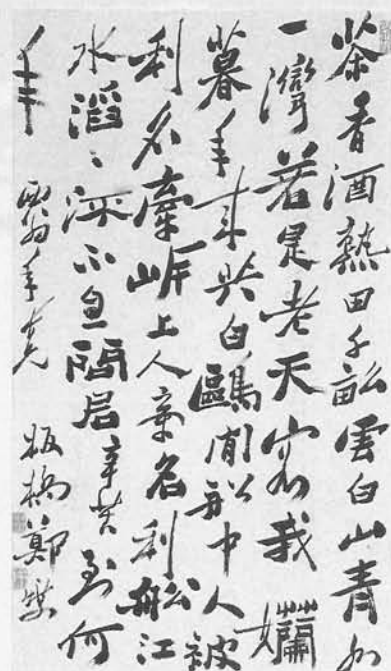 茶香酒熟田千畝雲白山青水
一灣若是老天容我嬾
暮年來與白鷗閒船中人被
利名牽岸上人牽名利船江
水滔〻流不息問君辛苦到何
年
翁年兄
板橋鄭燮